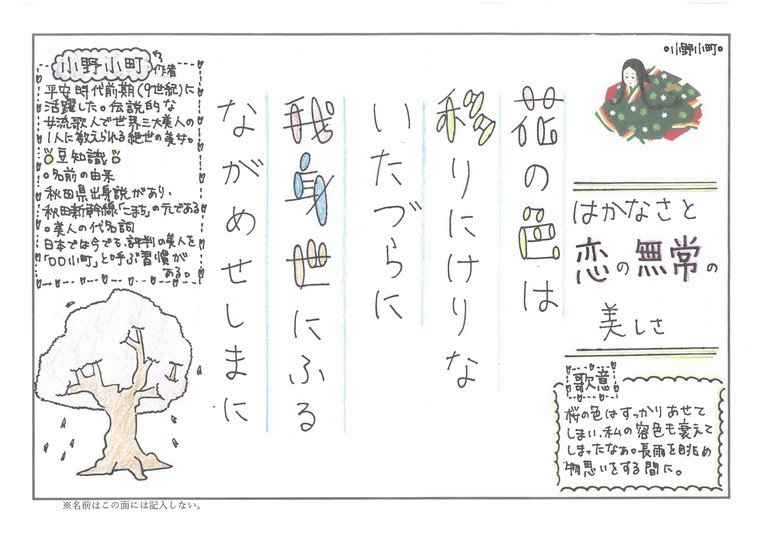 ◦小野小町◦
はかなさと
恋の無常の
美しさ
歌意
桜の色はすっかりあせて
しまい、私の容色も衰えて
しまったなぁ。長雨を眺め
物思いをする間に。
花の色は
移りにけりな
いたづらに
我身世にふる
ながめせしまに
小野小町
作者
平安時代前期(9世紀)に
活躍した。伝説的な
女流歌人で世界三大美人の
1人に数えられる絶世の美女。
豆知識
◦名前の由来
秋田県出身説があり、
秋田新幹線「こまち」の元である
◦美人の代名詞
日本では今でも、評判の美人を
「〇〇小町」と呼ぶ習慣が
ある。
※名前はこの面には記入しない。